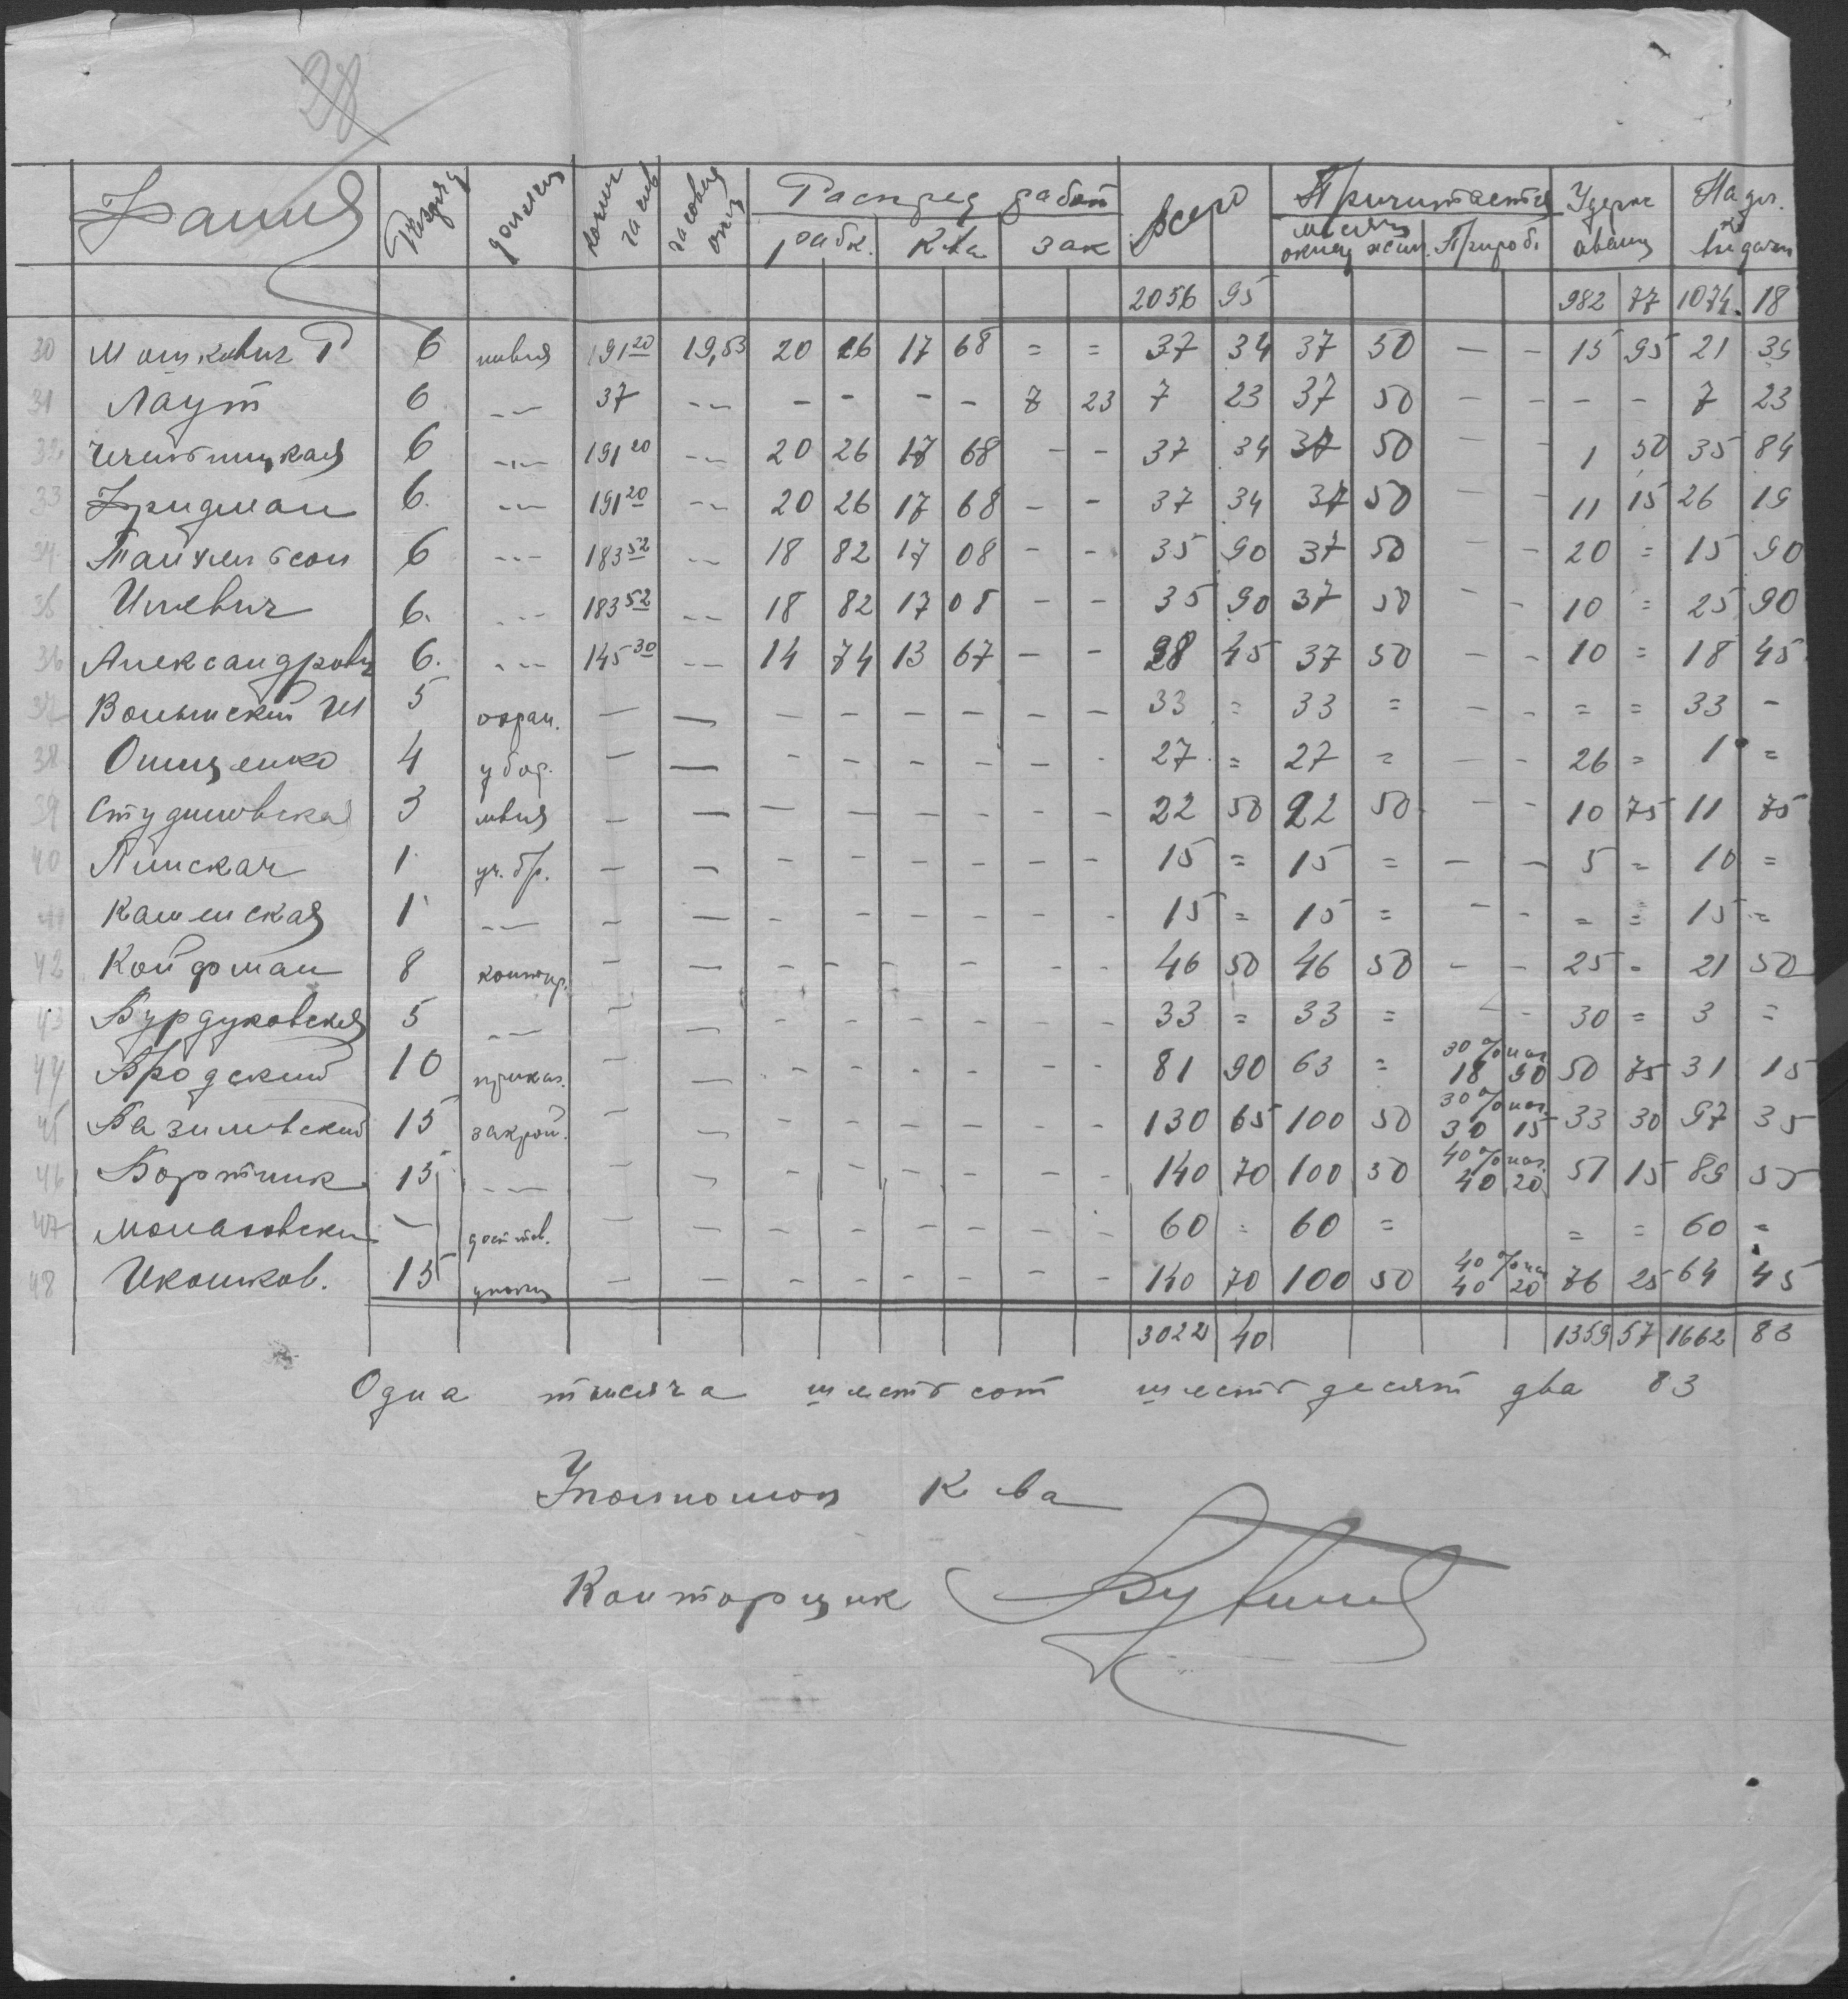 28
Фамил Разряд должн колич часов часовая опл Распред работ Всего Причитается Удерж Надл.
рабк. К-ва зак месячн оклад Прираб. аванс к выдачи
2056 95 982 77 1074 18
30 Мошкович Р 6 швея 191 20 19,53 20 26 17 68 = = 37 34 37 50 — - 15 95 21 39
31 Лаут 6 -"- 37 -"- - - - - 7 23 7 23 37 50 - - - - 7 23
32 6 -"- 191 20 -"- 20 26 17 68 - - 37 34 37 50 - - 1 50 35 84
33 Фридман 6. -"- 191 20 -"- 20 26 17 68 - - 37 34 37 50 - - 11 15 26 19
34 6 -"- 183 52 -"- 18 82 17 08 - - 35 90 37 50 - - 20 = 15 90
35 6. -"- 183 52 -"- 18 82 17 08 - - 35 90 37 50 - - 10 = 25 90
36 Александрович 6. -"- 145 30 -"- 14 74 13 67 - - 28 45 37 50 - - 10 = 18 45
37 Волынский Ш 5 охран. - - - - - - - - 33 = 33 = - - = = 33 -
38 Онищенко 4 убор. - - - - - - - - 27 = 27 = - - 26 = 1 =
39 Студиловская 3 швея - - - - - - - - 22 50 22 50 - - 10 75 11 75
40 Пинская 1 уч. бр. - - - - - - - - 15 = 15 = - - 5 = 10 =
41 Каменская 1 -"- - - - - - - - - 15 = 15 = - - = = 15 =
42 Койфман 8 контор. - - - - - - - - 46 50 46 50 - - 25 = 21 50
43 Бурдуковская 5 -"- - - - - - - - - 33 = 33 = - - 30 = 3 =
44 Бродский 10 приказ. - - - - - - - - 81 90 63 = 30% наг. 18 90 50 75 31 15
45 Базилевский 15 закрой. - - - - - - - - 130 65 100 50 30% наг. 30 15 33 30 97 35
46 Бортник 15 -"- - - - - - - - - 140 70 100 50 40% наг. 40 20 51 15 89 55
47 - - - - - - - - - 60 = 60 = = = 60 =
48 Икошков. 15 - - - - - - - - 140 70 100 50 40% наг 40 20 76 25 64 45
3022 40 1359 57 1662 83
Одна тысяча шестьсот шестьдесят два 83
Уполномоч К-ва
Конторщик